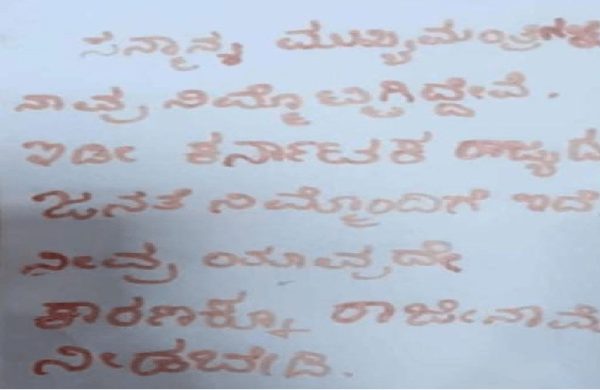 ಸನ್ಮಾನ್ಯ ಮುಖ್ಯಮಂತ್ರಿಗಳೆ
ನಾವು ನಿಮ್ಮೊಟ್ಟಿಗಿದ್ದೇವೆ.
ಇಡೀ ಕರ್ನಾಟಕ ರಾಜ್ಯದ
ಜನತೆ ನಿಮ್ಮೊಂದಿಗೆ ಇದೆ
ನೀವು ಯಾವುದೇ
ಕಾರಣಕ್ಕೂ ರಾಜೀನಾಮೆ
ನೀಡಬೇಡಿ.